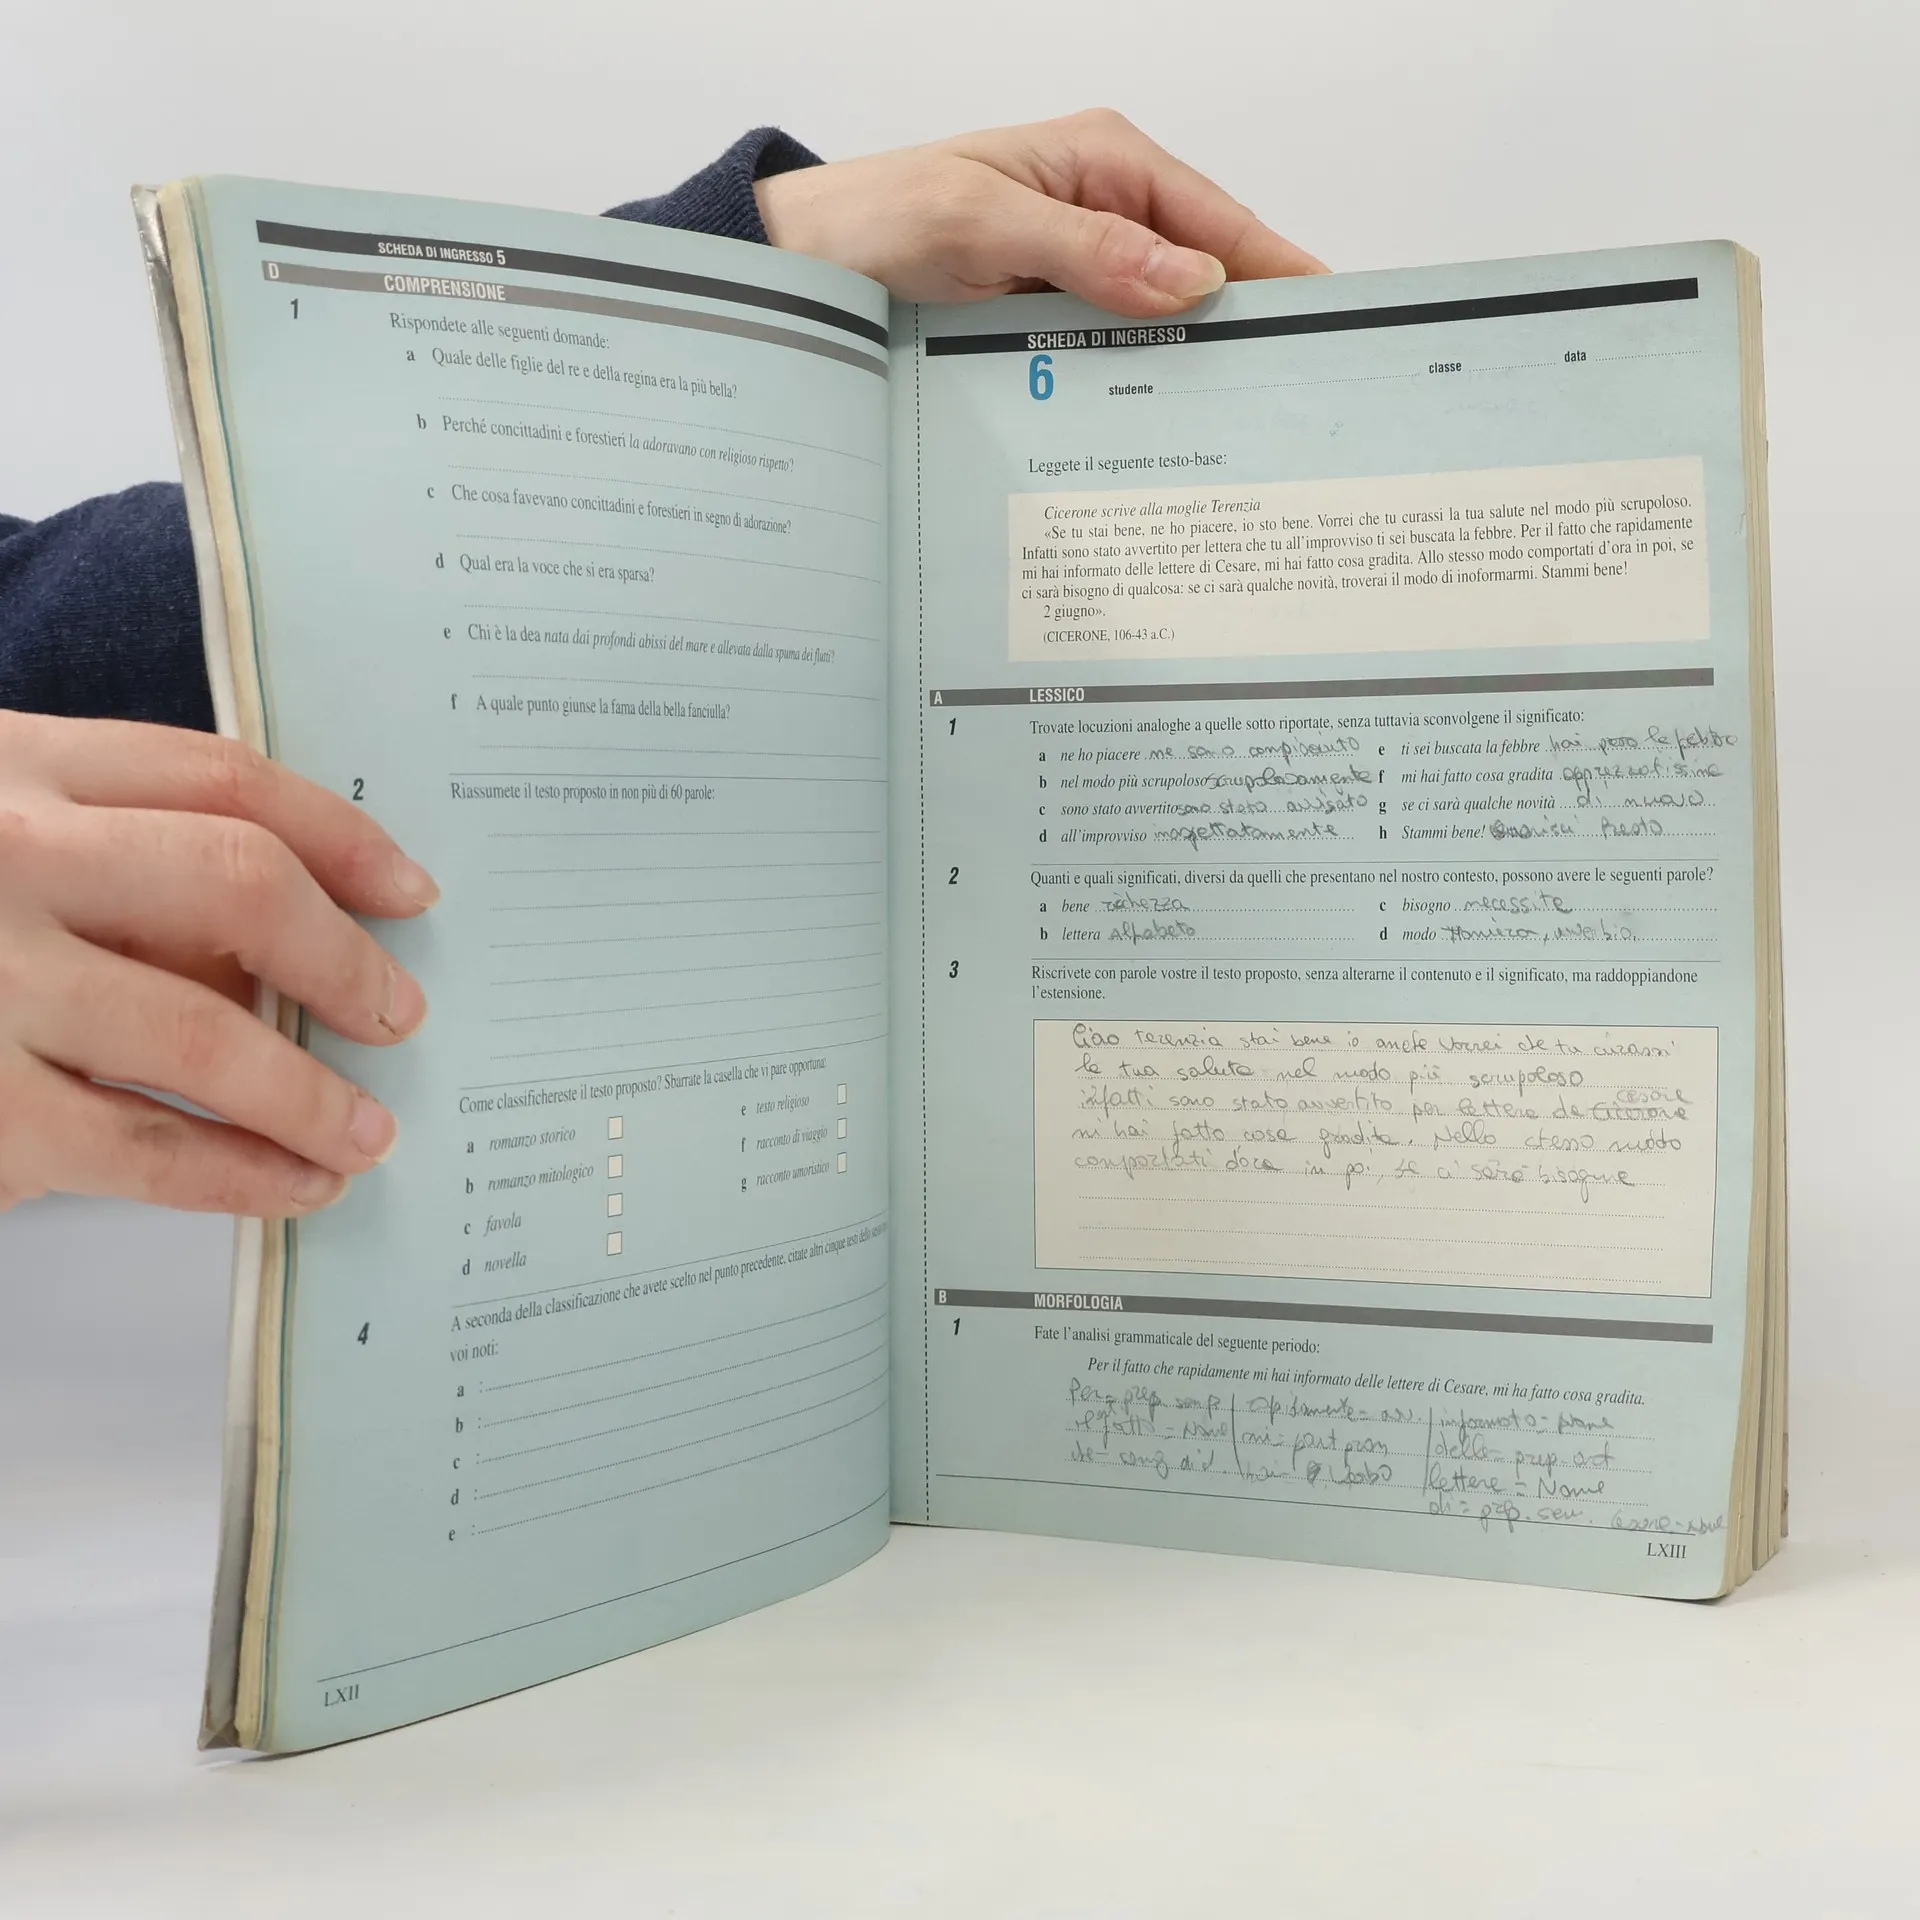 SCHEDA DI INGRESSO 5
D COMPRENSIONE
1 Rispondete alle seguenti domande:
a Quale delle figlie del re e della regina era la più bella?
b Perché concittadini e forestieri la adoravano con religioso rispetto?
c Che cosa favevano concittadini e forestieri in segno di adorazione?
d Qual era la voce che si era sparsa?
e Chi è la dea nata dai profondi abissi del mare e allevata dalla spuma dei flutti?
f A quale punto giunse la fama della bella fanciulla?
2 Riassumete il testo proposto in non più di 60 parole:
Come classifichereste il testo proposto? Sbarrate la casella che vi pare opportuna:
a romanzo storico
b romanzo mitologico
c favola
d novella
e testo religioso
f racconto di viaggio
g racconto umoristico
4 A seconda della classificazione che avete scelto nel punto precedente, citate altri cinque testi dello
voi noti:
a :
b :
c :
d :
e :
LXII
SCHEDA DI INGRESSO
6 studente classe data
Leggete il seguente testo-base:
Cicerone scrive alla moglie Terenzia
«Se tu stai bene, ne ho piacere, io sto bene. Vorrei che tu curassi la tua salute nel modo più scrupoloso.
Infatti sono stato avvertito per lettera che tu all'improvviso ti sei buscata la febbre. Per il fatto che rapidamente
mi hai informato delle lettere di Cesare, mi hai fatto cosa gradita. Allo stesso modo comportati d'ora in poi, se
ci sarà bisogno di qualcosa: se ci sarà qualche novità, troverai il modo di inoformarmi. Stammi bene!
2 giugno».
(CICERONE, 106-43 a.C.)
A LESSICO
1 Trovate locuzioni analoghe a quelle sotto riportate, senza tuttavia sconvolgene il significato:
a ne ho piacere me sono compiaciuto e ti sei buscata la febbre hai preso la febbre
b nel modo più scrupoloso scrupolosamente f mi hai fatto cosa gradita apprezzatissima
c sono stato avvertito sono stato avvisato g se ci sarà qualche novità di nuovo
d all'improvviso inaspettatamente h Stammi bene! Guarisci Presto
2 Quanti e quali significati, diversi da quelli che presentano nel nostro contesto, possono avere le seguenti parole?
a bene c bisogno necessità
b lettera Alfabeto d modo Maniera, avverbio
3 Riscrivete con parole vostre il testo proposto, senza alterarne il contenuto e il significato, ma raddoppiandone
l'estensione.
Ciao terenzia stai bene io anche Vorrei che tu curassi
la tua salute nel modo più scrupoloso
cesare
infatti sono stato avvertito per lettera da Cicerone
mi hai fatto cosa gradita. Nello stesso modo
comportati d'ora in poi, se ci sarà bisogno
B MORFOLOGIA
1 Fate l'analisi grammaticale del seguente periodo:
Per il fatto che rapidamente mi hai informato delle lettere di Cesare, mi ha fatto cosa gradita.
Per = prep. semp av. informato = Nome
fatto = Nome mi = part pron delle = prep. art
che = cong hai = Verbo lettere = Nome
di = prep. sem. Cesare - Nome
LXIII